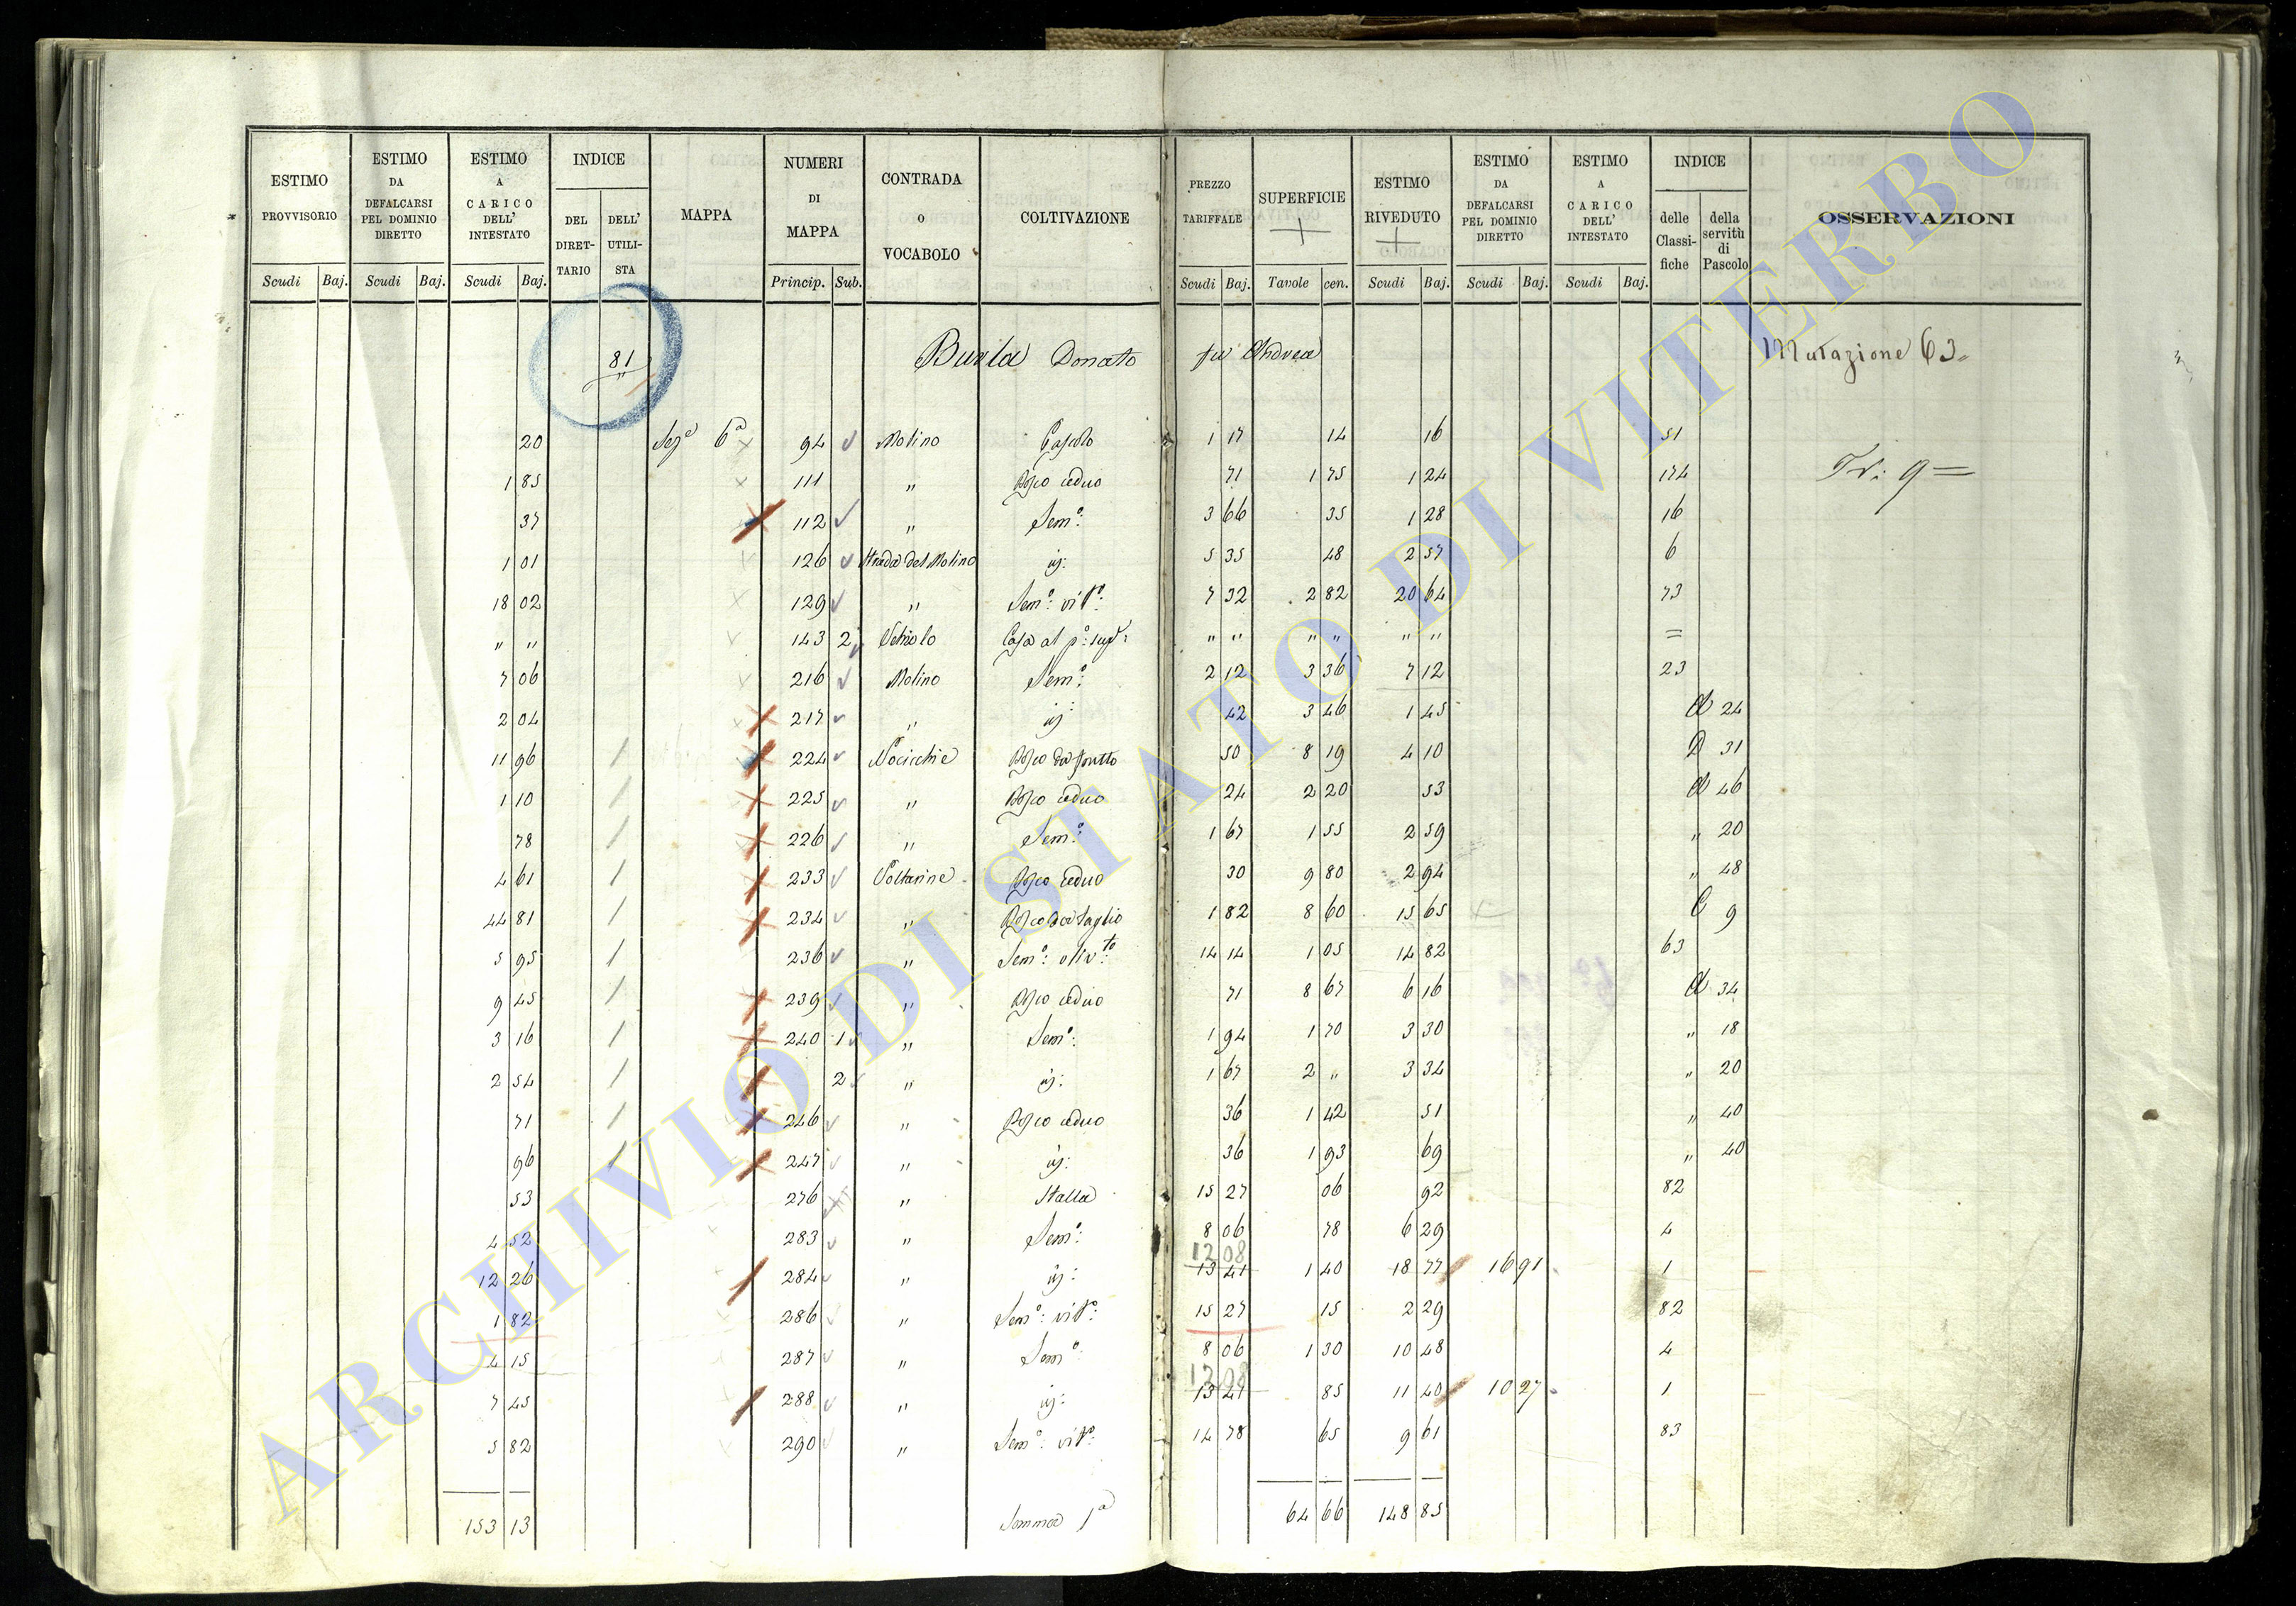 ESTIMO PROVVISORIO Scudi Baj. | ESTIMO DA DEFALCARSI PEL DOMINIO DIRETTO Scudi Baj. | ESTIMO A CARICO DELL' INTESTATO Scudi Baj. | INDICE DEL DIRETTARIO DELL' UTILISTA | MAPPA | NUMERI DI MAPPA Princip. Sub. | CONTRADA O VOCABOLO | COLTIVAZIONE | PREZZO TARIFFALE Scudi Baj. | SUPERFICIE Tavole cen. | ESTIMO RIVEDUTO Scudi Baj. | ESTIMO DA DEFALCARSI PEL DOMINIO DIRETTO Scudi Baj. | ESTIMO A CARICO DELL' INTESTATO Scudi Baj. | INDICE delle Classifiche della servitù di Pascolo | OSSERVAZIONI
81 Burla Donato fu Andrea Mutazione 63
20 Sez.e 6a 94 Molino 1 17 14 16 51
1 85 111 " Bosco ceduo 71 1 75 1 24 174 Tr: 9=
37 112 " Sem.o: 3 66 35 1 28 16
1 01 126 Strada del Molino id: 5 35 48 2 57 6
18 02 129 " Sem.o: vit.o: 7 32 2 82 20 64 73
" " 143 2 Casa al p.o: sup.r: " " " " " " =
7 06 216 Molino Sem.o: 2 12 3 36 7 12 23
2 04 217 " id: 42 3 46 1 45 A 24
11 96 224 Nocicchie Bosco da frutto 50 8 19 4 10 D 31
1 10 225 " Bosco ceduo 24 2 20 53 A 46
78 226 " Sem.o: 1 67 1 55 2 59 " 20
4 61 233 Bosco ceduo 30 9 80 2 94 " 48
44 81 234 " Bosco da taglio 1 82 8 60 15 65 C 9
5 95 236 " Sem.o: oliv.to: 14 14 1 05 14 82 63
9 45 239 " Bosco ceduo 71 8 67 6 16 A 34
3 16 240 1 " Sem.o: 1 94 1 70 3 30 " 18
2 54 2 " id: 1 67 2 " 3 34 " 20
71 246 " Bosco ceduo 36 1 42 51 " 40
96 247 " id: 36 1 93 69 " 40
53 276 " Stalla 15 27 06 92 82
4 52 283 " Sem.o: 8 06 78 6 29 4
12 26 284 " id: 12 08 13 41 1 40 18 77 16 91 1
1 82 286 " Sem.o: vit.o: 15 27 15 2 29 82
4 15 287 " Sem.o: 8 06 1 30 10 48 4
7 45 288 " id: 12 08 13 41 85 11 40 10 27 1
5 82 290 " Sem.o: vit.o: 14 78 65 9 61 83
153 13 Somma 1a 64 66 148 85
ARCHIVIO DI STATO DI VITERBO